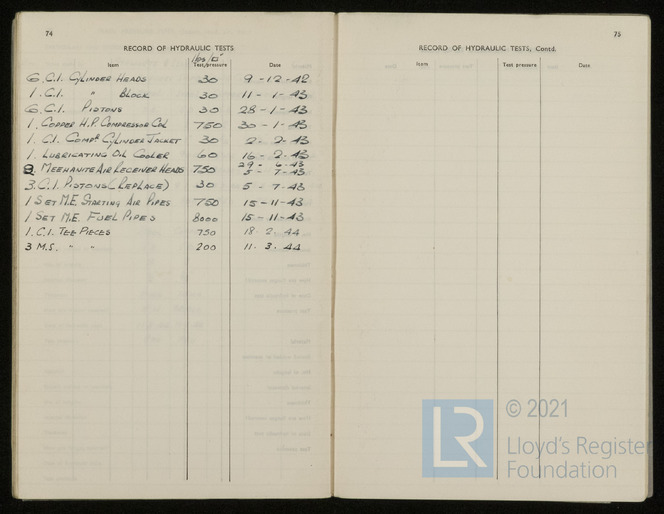 74
RECORD OF HYDRAULIC TESTS
lbs/□"
Item Test pressure Date
6 C.I. CYLINDER HEADS 30 9-12-42
1 C.I. " BLOCK 30 11-1-43
6 C.I. PISTONS 30 28-1-43
1. COPPER H.P. COMPRESSOR COIL 750 30-1-43
1. C.I. COMPR. CYLINDER JACKET 30 2-2-43
1. LUBRICATING OIL COOLER 60 16-2-43
29-6-43
MEEHANITE AIR RECEIVER HEADS 750 5-7-43
3 C.I. PISTONS (REPLACE) 30 5-7-43
1 SET M.E. STARTING AIR PIPES 750 15-11-43
1 SET M.E. FUEL PIPES 8000 15-11-43
1. C.I. TEE PIECES 750 18.2.44
3 M.S. " " 200 11.3.44
75
RECORD OF HYDRAULIC TESTS, Contd.
Item Test pressure Date
LR
© 2021
Lloyd's Register
Foundation